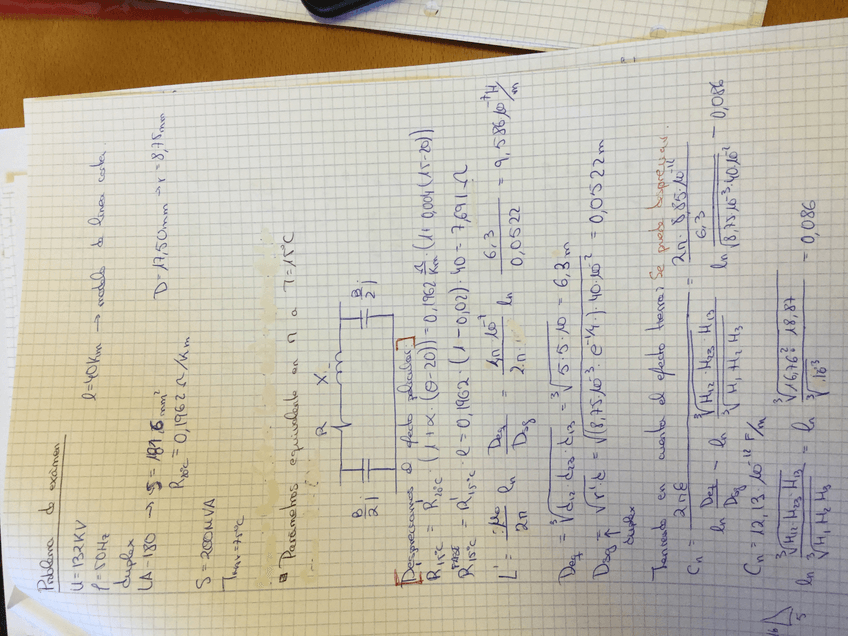 Problema de examen
U=132KV
f=50Hz l=40Km → modelo de línea corta.
duplex
LA-180 → S=181,6 mm² D=17,50mm → r=8,75mm
R20°C = 0,1962 Ω/Km
S=200MVA
Tmax=75°C
Parámetros equivalente en π a T=15°C
R X
B/2 j B/2 j
[Despreciamos el efecto pelicular]
R'15°C = R'20°C · (1+α·(θ-20)) = 0,1962 Ω/Km · (1+0,004(15-20))
R15°C FASE = R'15°C · l = 0,1962 · (1-0,02) · 40 = 7,691 Ω
L' = μ0/2π ln Deq/Dsg = 4π·10⁻⁷/2π · ln 6,3/0,0522 = 9,586·10⁻⁷ H/m
Deq = ∛d12·d23·d13 = ∛5·5·10 = 6,3 m
Dsg = √r'·d = √(8,75·10⁻³·e^-1/4)·40·10⁻² = 0,0522 m
duplex
Teniendo en cuenta el efecto tierra: Se puede despreciar.
Cn = 2πε / ln Deq/Dsg - ln ∛H12·H23·H13/∛H1 H2 H3 = 2π·8,85·10⁻¹² / ln 6,3/√8,75·10⁻³·40·10⁻² - 0,086
Cn = 12,13·10⁻¹² F/m
ln ∛H12·H23·H13/∛H1 H2 H3 = ln ∛16,76²·18,87/∛15³ = 0,086
5